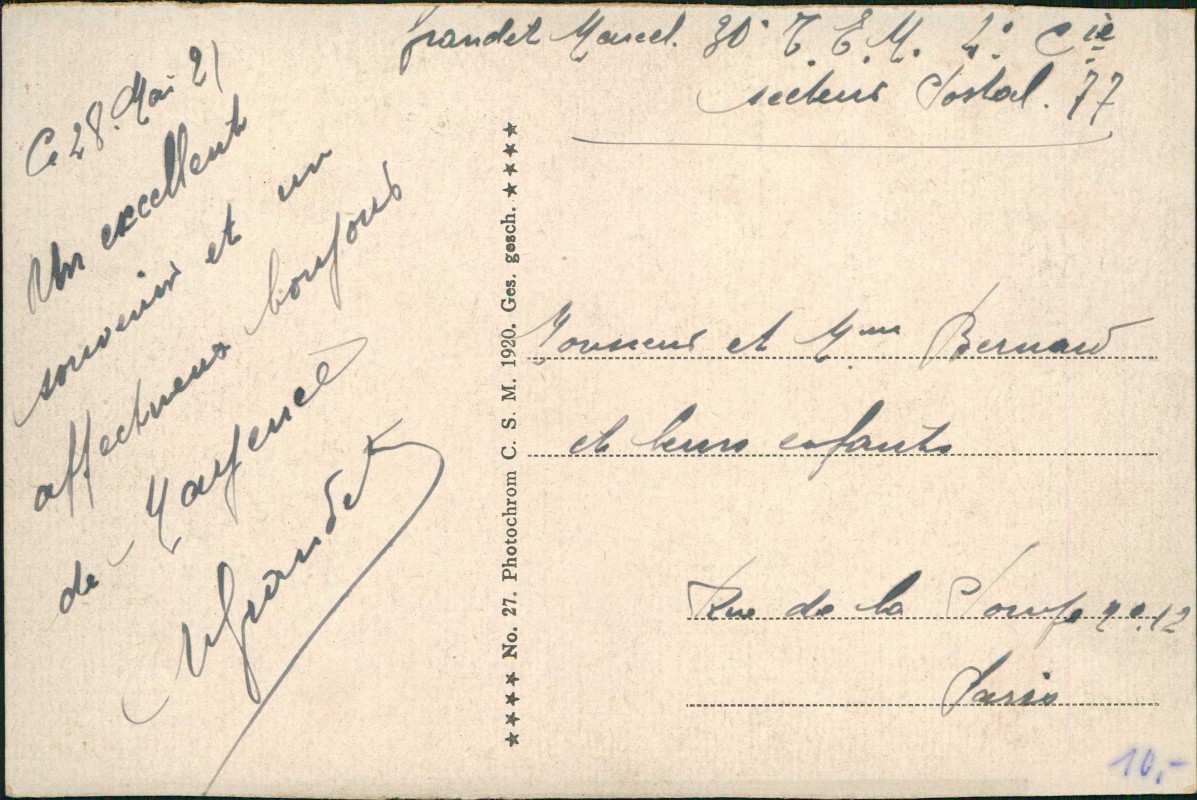 Grandet Marcel. 30° T. E. M. 2°. Cie
secteur Postal. 77
Ce 28. Mai 21
Un excellent
souvenir et un
affectueux bonjour
de Mayence
MGrandet
★★★★ No. 27. Photochrom C. S. M. 1920. Ges. gesch. ★★★★
Monsieur et Mme Bernard
et leurs enfants
Rue de la Pompe no. 12
Paris
10,-